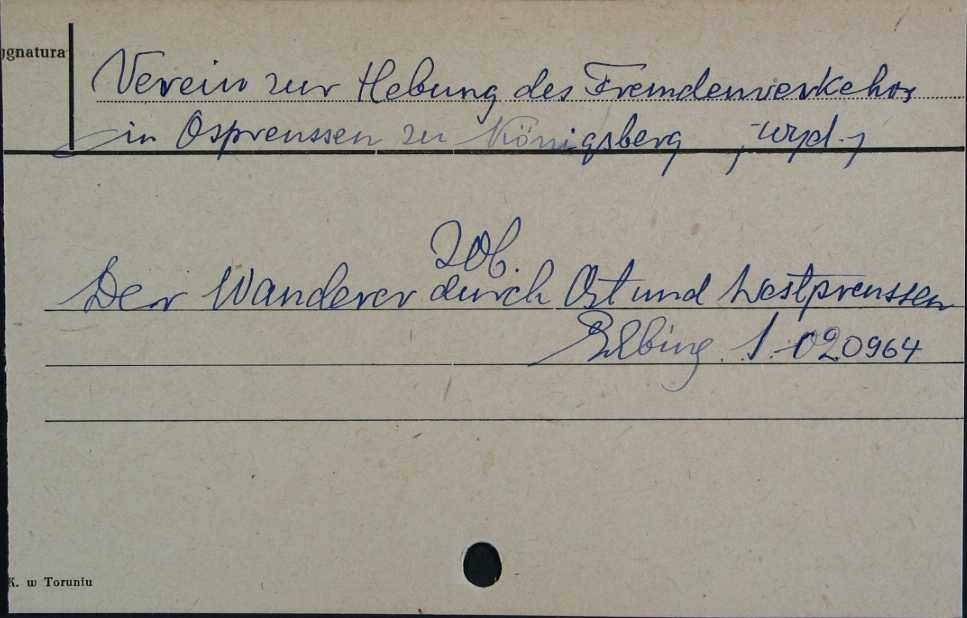 ygnatura
Verein zur Hebung des Fremdenverkehrs
in Ospreussen zu Königsberg, wyd.,
zob.
Der Wanderer durch Ost und Westpreussen
Elbing 1. 020964
K. w Toruniu